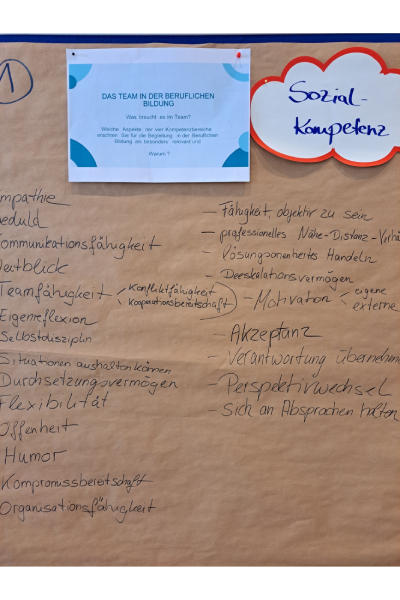 1
DAS TEAM IN DER BERUFLICHEN
BILDUNG
Was braucht es im Team?
Welche Aspekte der vier Kompetenzbereiche
erachten Sie für die Begleitung in der Beruflichen
Bildung als besonders relevant und
Warum?
Sozial-
Kompetenz
mpathie
eduld
ommunikationsfähigkeit
eitblick
Teamfähigkeit
Konfliktfähigkeit
Kooperationsbereitschaft
Eigenreflexion
Selbstdisziplin
Situationen aushalten können
Durchsetzungsvermögen
Flexibilität
Offenheit
Humor
Kompromissbereitschaft
Organisationsfähigkeit
- Fähigkeit, objektiv zu sein
- professionelles Nähe-Distanz-Verhä
- Lösungsorientiertes Handeln
- Deeskalationsvermögen
- Motivation
eigene
externe
- Akzeptanz
- Verantwortung übernehm
- Perspektivwechsel
- Sich an Absprachen halten